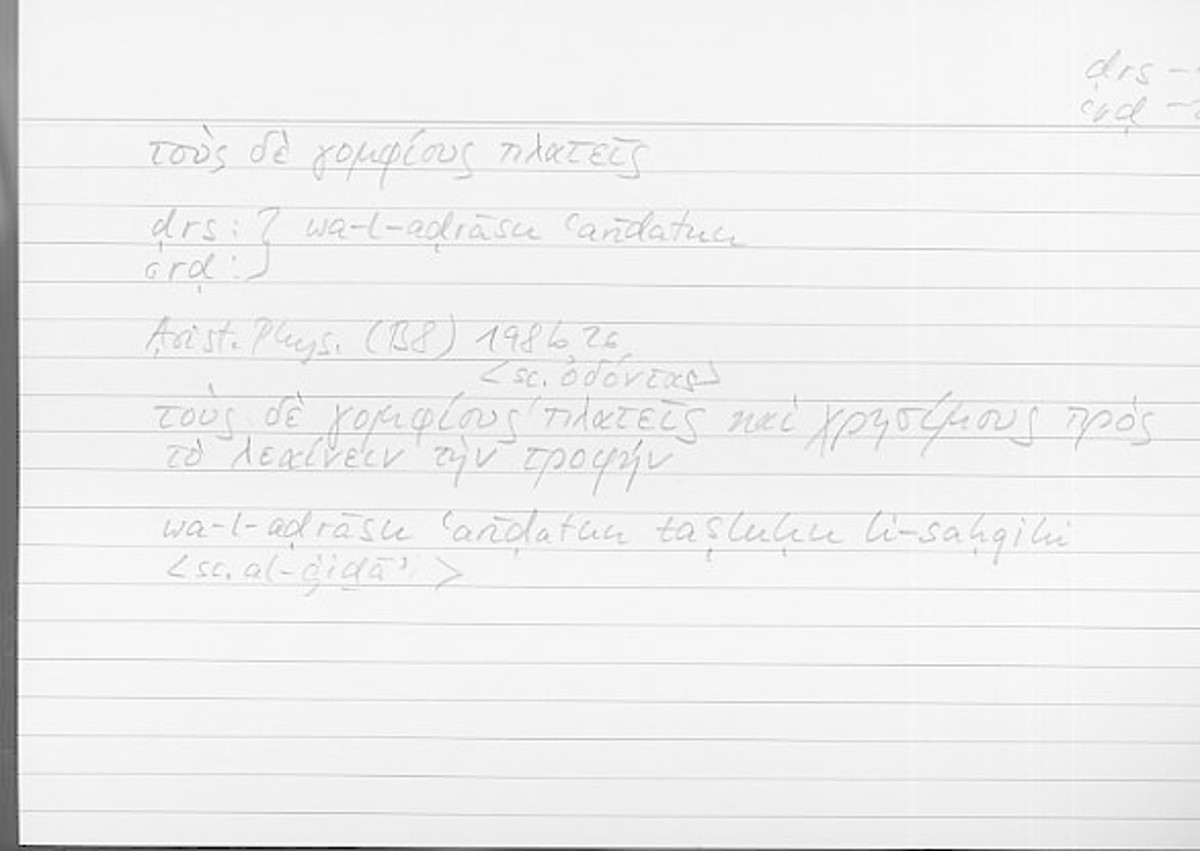 ḍrs –
ʿrḍ –
τοὺς δὲ γομφίους πλατεῖς
ḍrs : } wa-l-aḍrāsu ʿarīḍatun
ʿrḍ : }
Arist. Phys. (B8) 198b26
<sc. ὀδόντας>
τοὺς δὲ γομφίους πλατεῖς καὶ χρησίμους πρὸς
τὸ λεαίνειν τὴν τροφήν
wa-l-aḍrāsu ʿarīḍatun taṣluḥu li-saḥqihi
<sc. al-ġiḏāʾi>